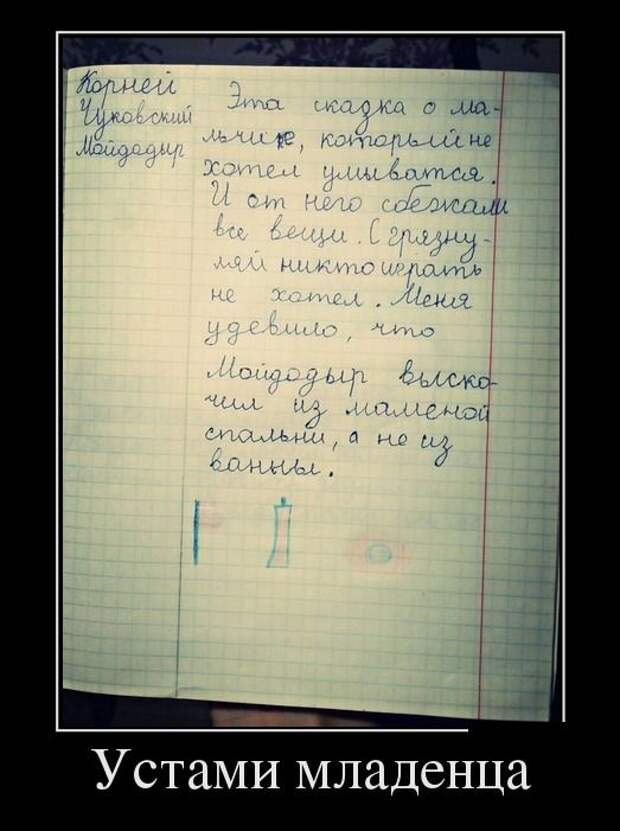 Корней
Чуковский
Мойдодыр
Эта сказка о ма-
льчике, которыйи не
хотел умыватся.
И от него сбежали
все вещи. С грязну-
ляй никто играть
не хотел. Меня
удевило, что
Мойдодыр выско-
чил из маменой
спальни, а не из
ванны.
Устами младенца